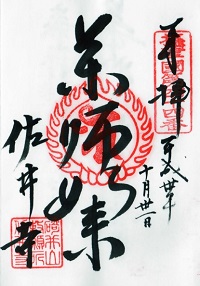 奉拝
平成卅年
十月卅一日
薬師如来
佐井寺